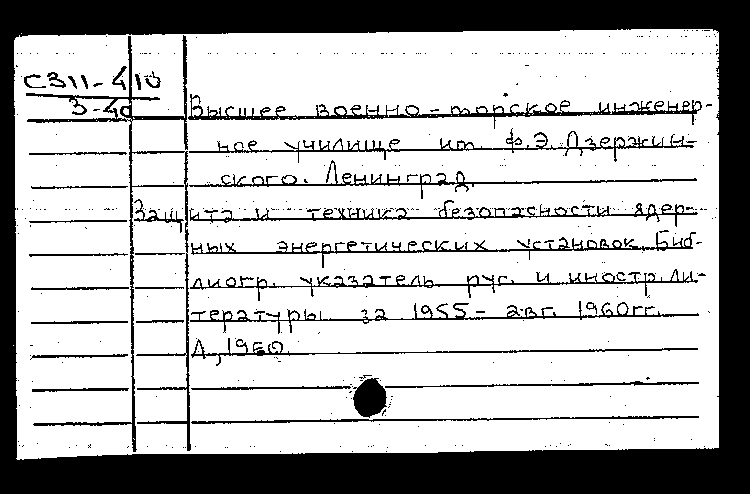 С311-410
3-40
Высшее военно-морское инженер-
ное училище им. Ф.Э. Дзержин-
ского. Ленинград.
Защита и техника безопасности ядер-
ных энергетических установок. Биб-
лиогр. указатель рус. и иностр. ли-
тературы за 1955 - авг. 1960 гг.
Л., 1960.